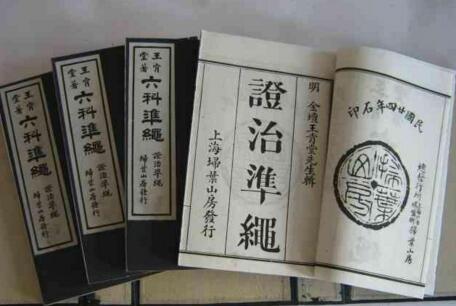 王肯堂著
六科準繩
證治準繩
掃葉山房發行
王肯堂著
六科準繩
證治準繩
掃葉山房發行
王肯堂著
六科準繩
證治準繩
掃葉山房發行
明 金壇王肯堂先生輯
證治準繩
上海掃葉山房發行
民國廿四年石印
掃葉山房